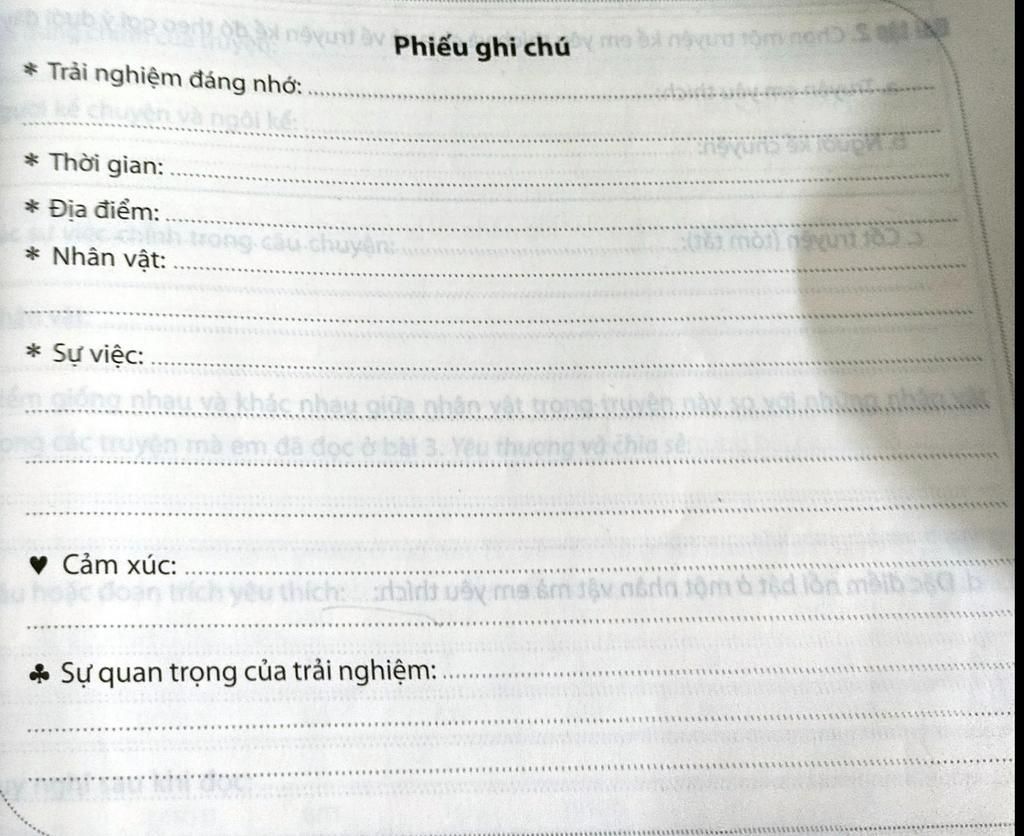 Phiếu ghi chú
* Trải nghiệm đáng nhớ:
* Thời gian:
* Địa điểm:
* Nhân vật:
* Sự việc:
♥ Cảm xúc:
♣ Sự quan trọng của trải nghiệm: